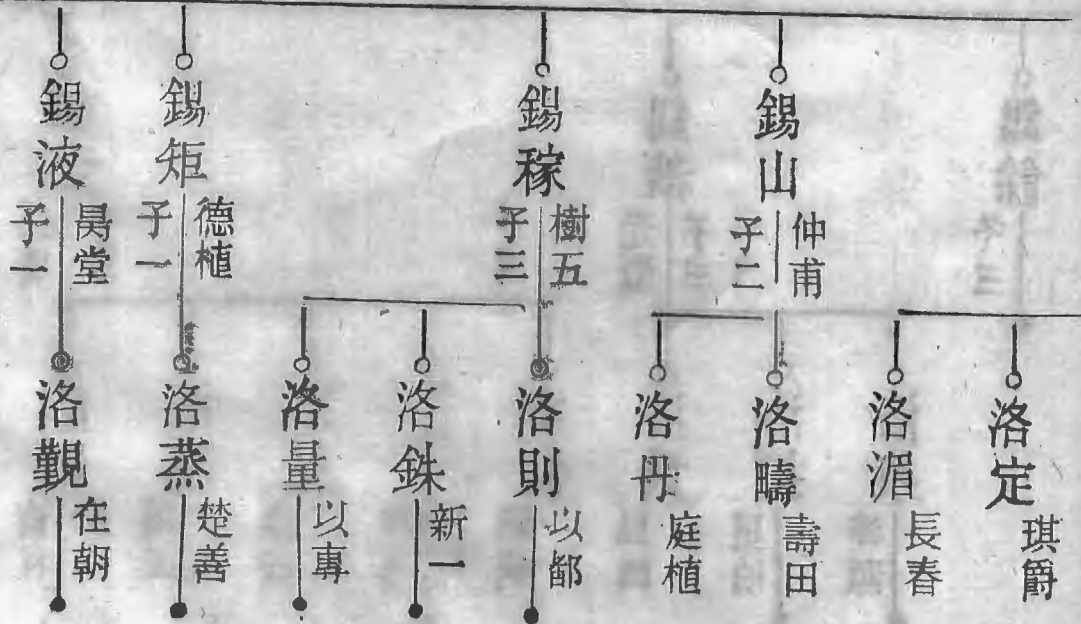 錫山
仲甫
子二
錫稼
樹五
子三
錫矩
德植
子一
錫液
昺堂
子一
洛定
琪爵
洛湄
長春
洛疇
壽田
洛丹
庭植
洛則
以都
洛銖
新一
洛量
以專
洛蒸
楚善
洛觐
在朝